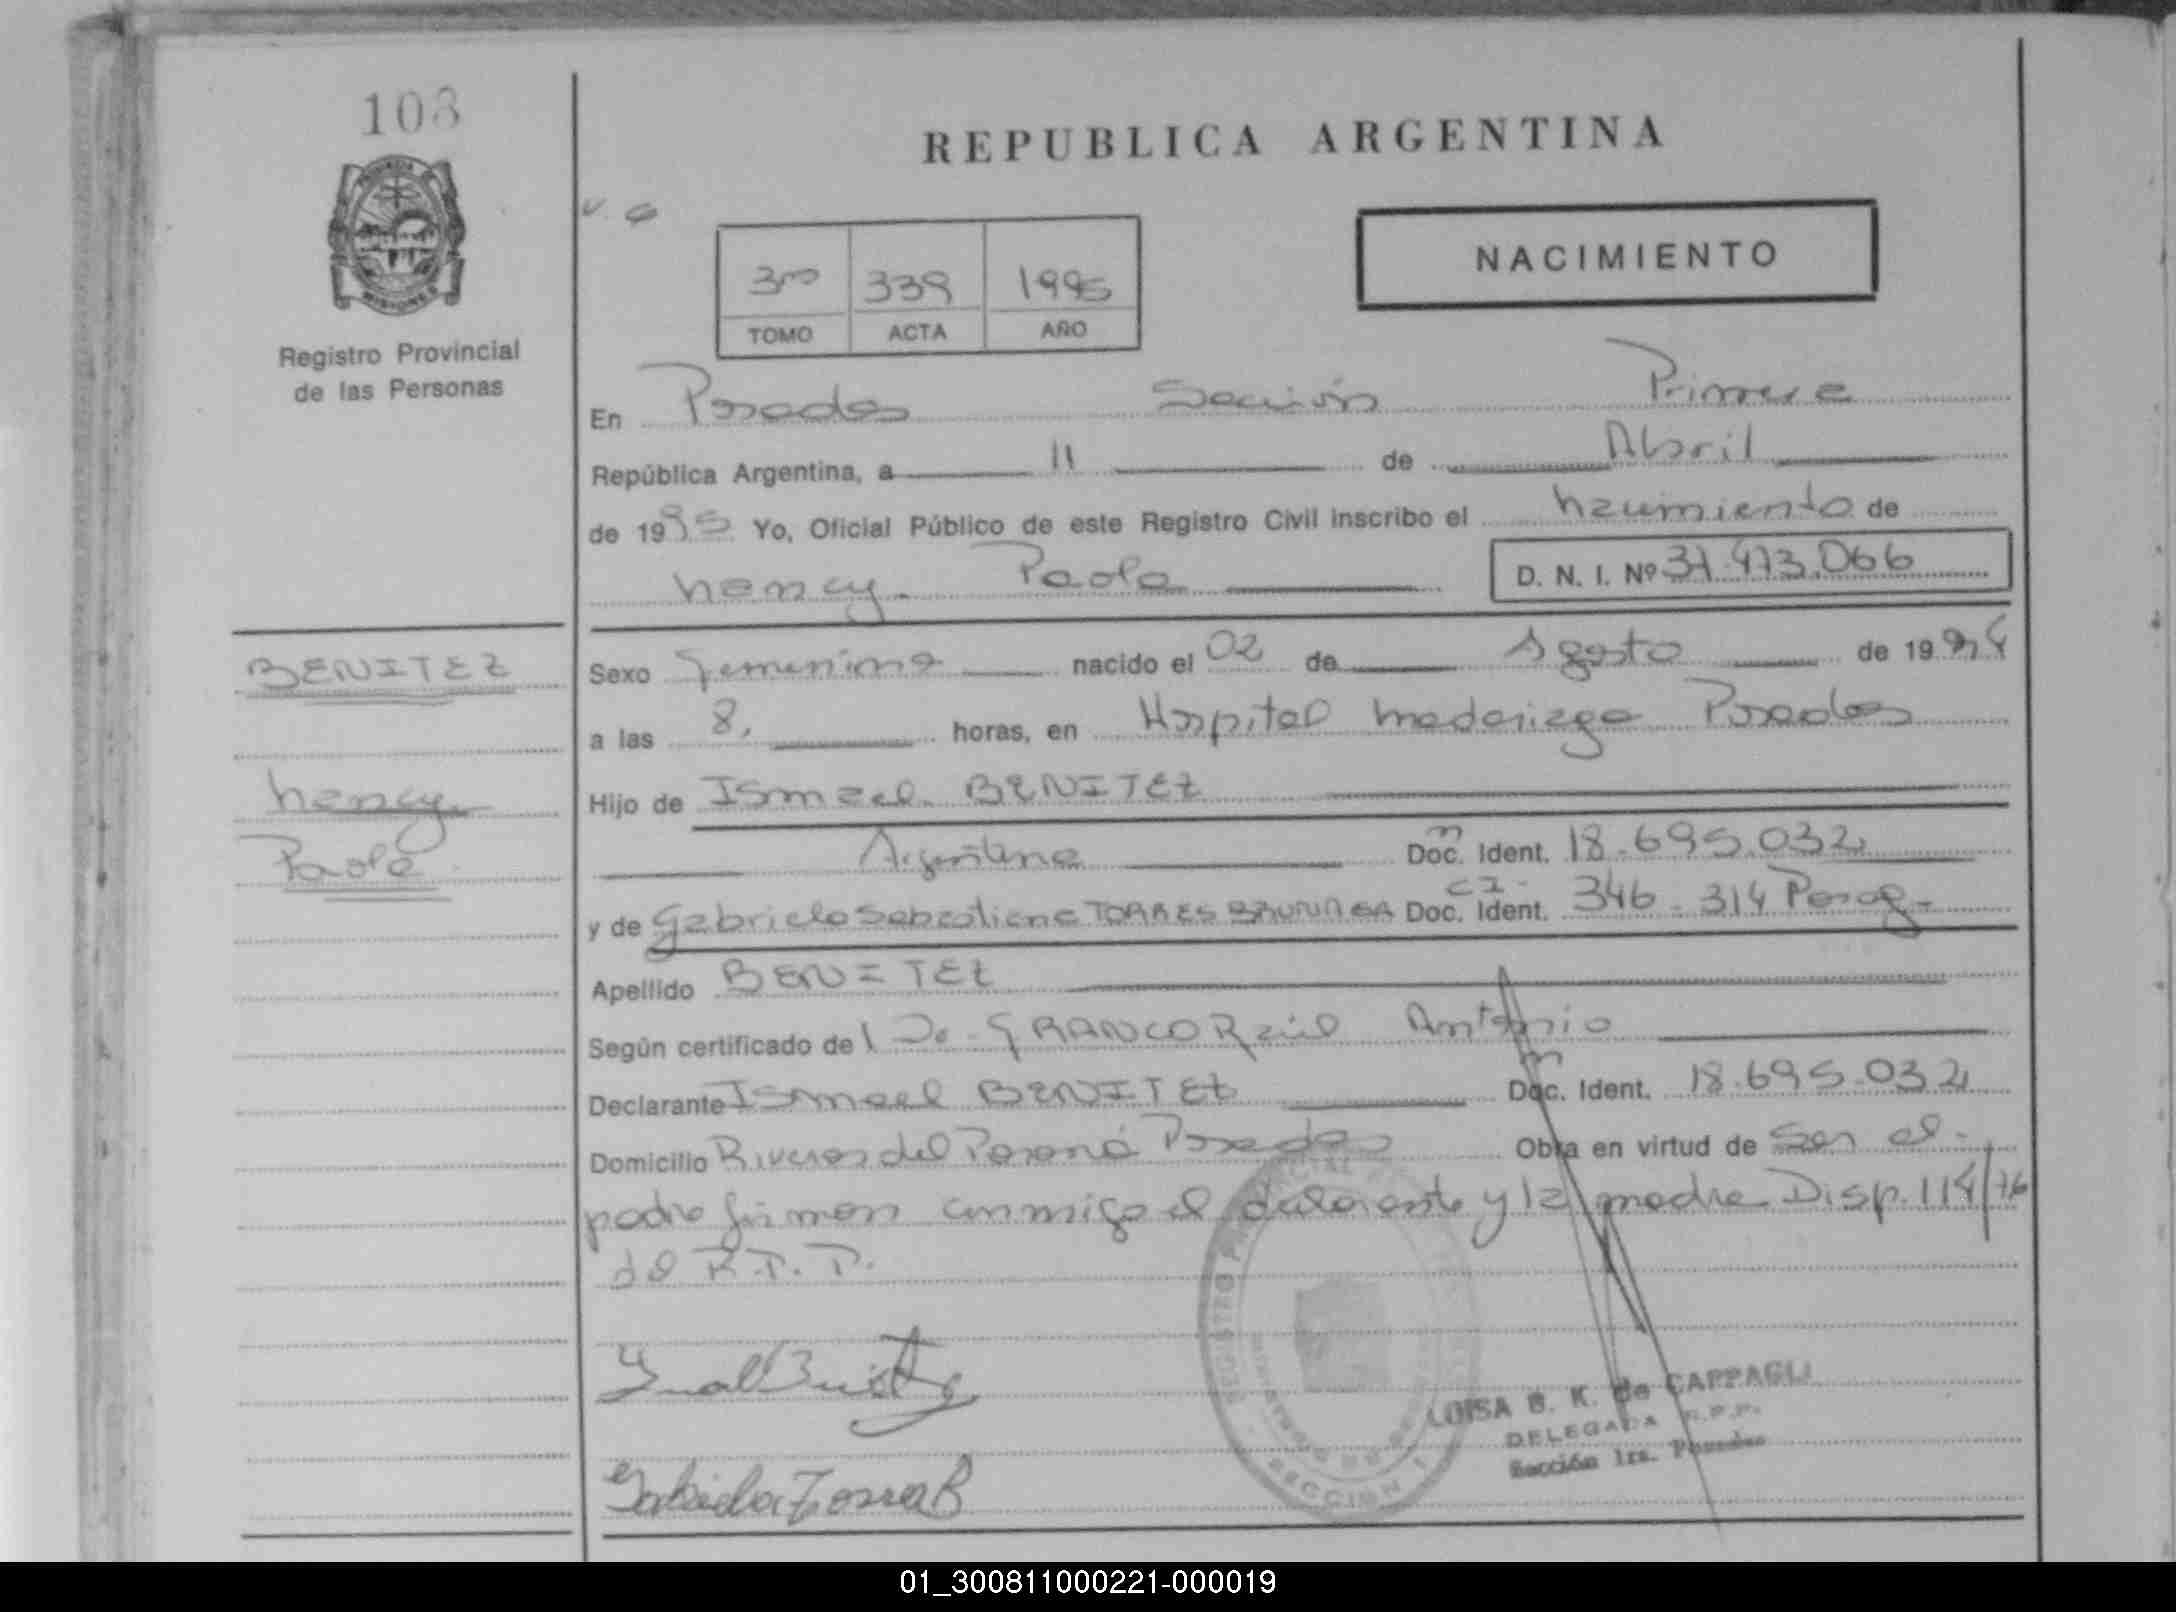 108
REPUBLICA ARGENTINA
NACIMIENTO
3ro 339 1995
TOMO ACTA AÑO
Registro Provincial
de las Personas
En Posadas Sección Primera
República Argentina, a 11 de Abril
de 1995 Yo, Oficial Público de este Registro Civil inscribo el nacimiento de
nancy Paola D. N. I. Nº 37.473.066
BENITEZ
nancy
Paola
Sexo femenino nacido el 02 de Agosto de 1994
a las 8, horas, en Hospital madariaga Posadas
Hijo de Ismael BENITEZ
Argentina Doc. Ident. 18.695.032
y de Gabriela Sebastiana TORRES Doc. Ident. CI. 346.314 Parag.
Apellido BENITEZ
Según certificado de Dr. FRANCO Raúl Antonio
Declarante Ismael BENITEZ Doc. Ident. 18.695.032
Domicilio Riveras del Paraná Posadas Obra en virtud de ser el
padre firman conmigo el declarante y la madre Disp. 114/76
del R.P.P.
Gabriela Torres B
LUISA B. K. de CAPPAGLI
DELEGADA R.P.P.
Sección 1ra. Posadas
01_300811000221-000019